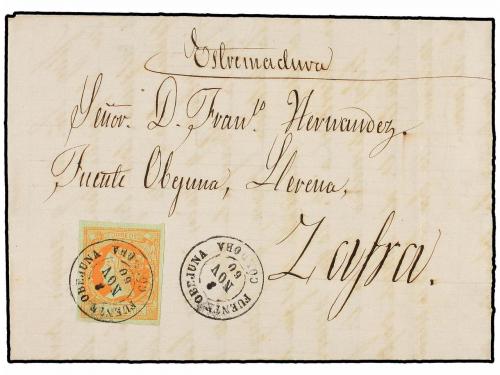 Estremadura
Señor. D. Fran.co Hernandez.
Fuente Obejuna, Llerena,
Zafra.
FUENTE OBEJUNA CORDOBA
NOV
60
FUENTE OBEJUNA CORDOBA
NOV
60